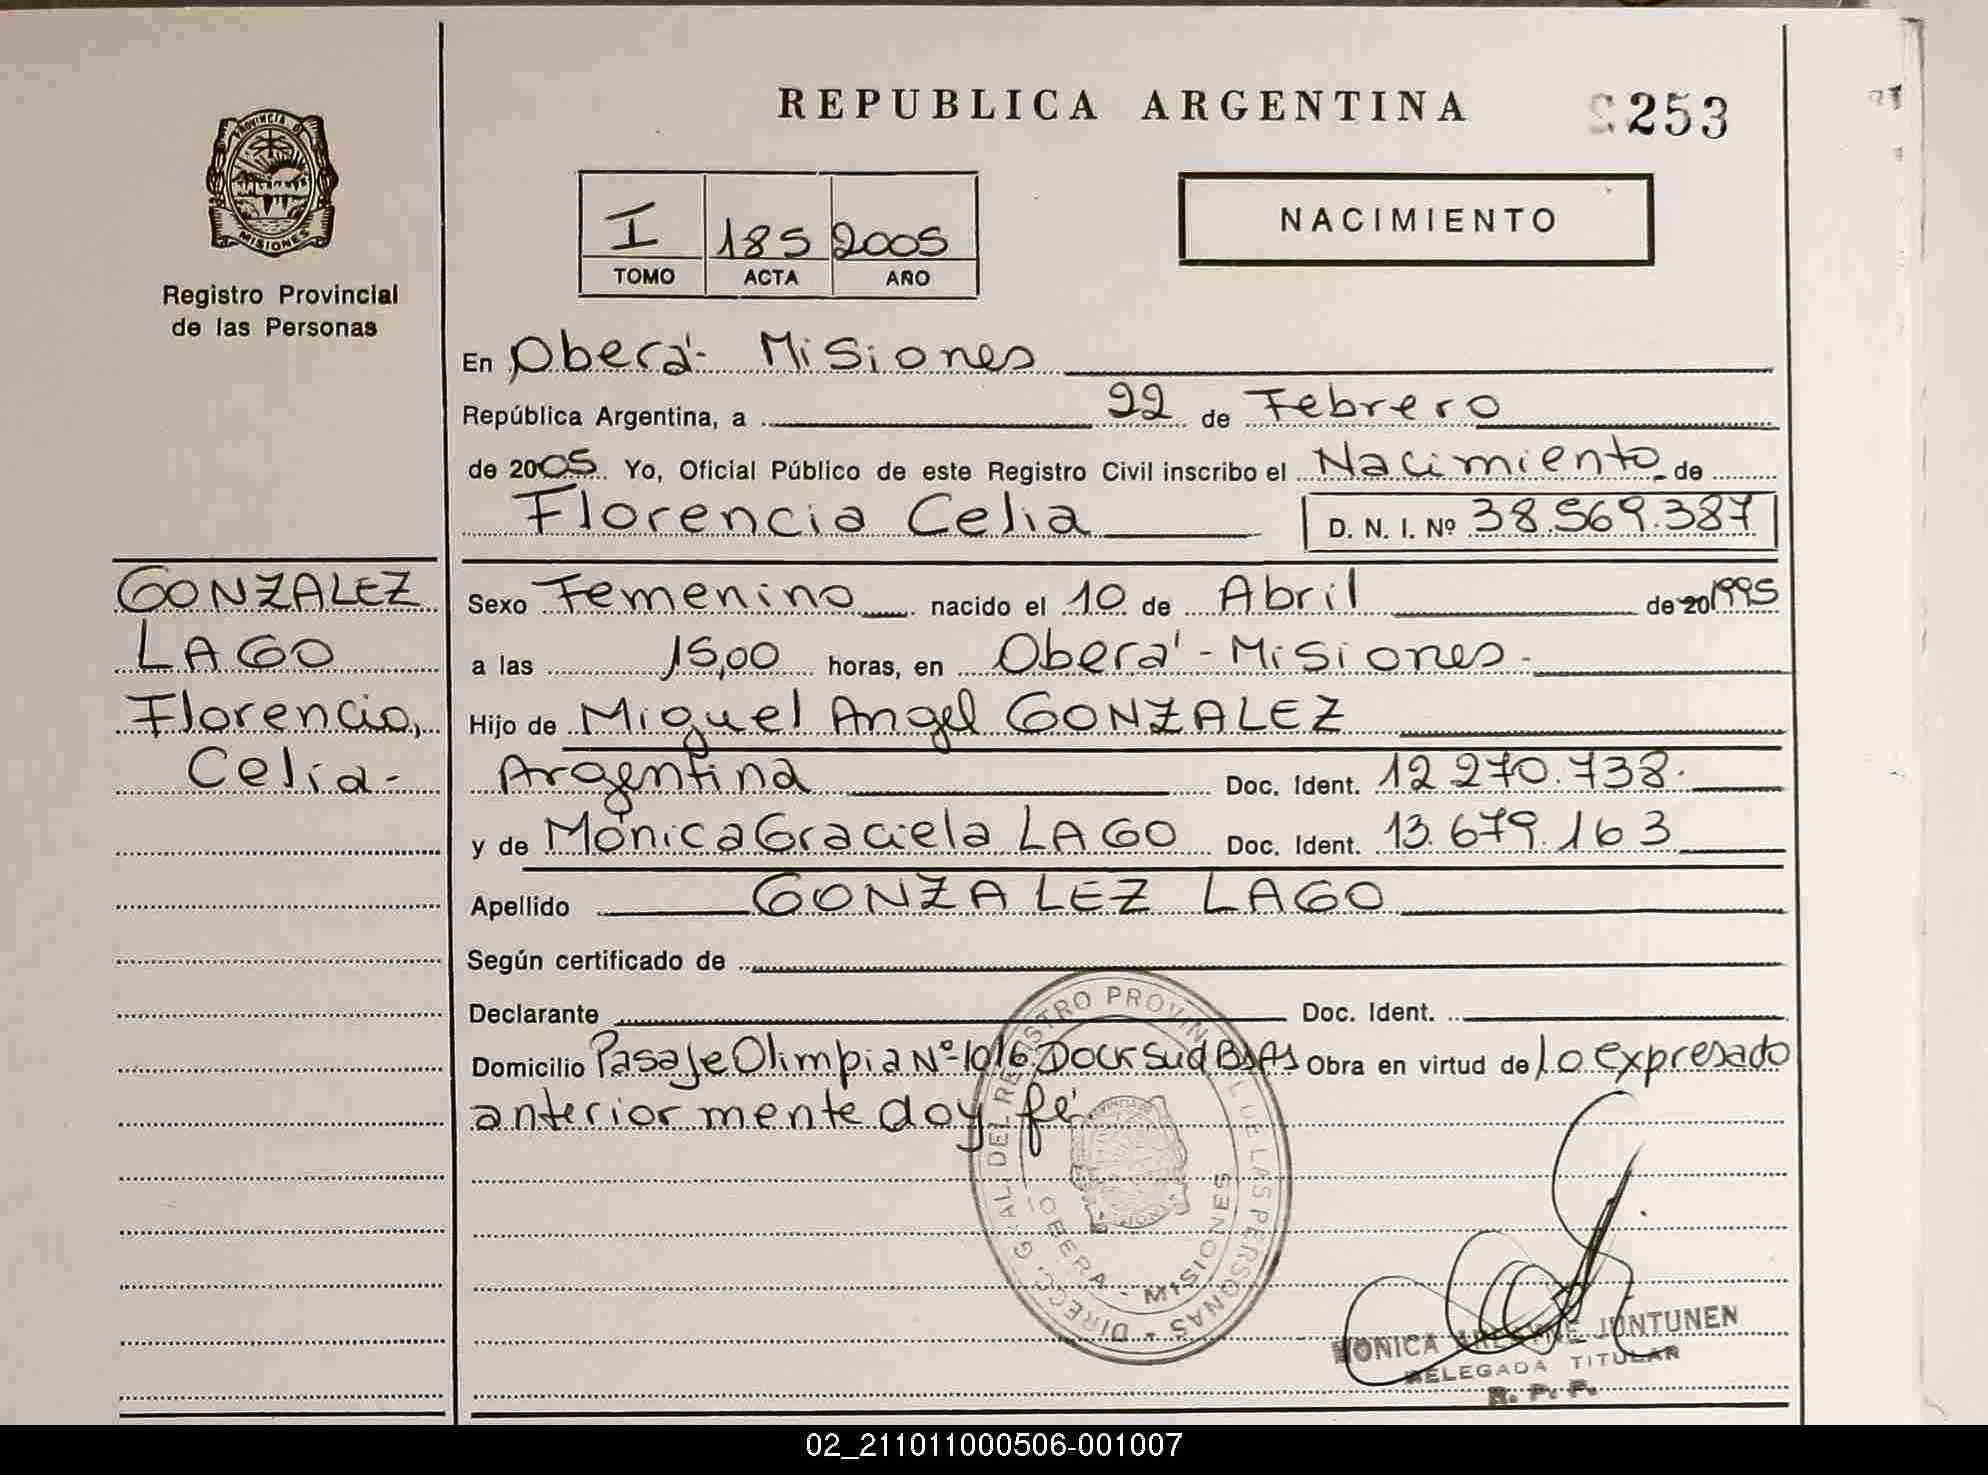 REPUBLICA ARGENTINA
253
PROVINCIA DE
MISIONES
Registro Provincial
de las Personas
I 185 2005
TOMO ACTA AÑO
NACIMIENTO
En Oberá- Misiones
República Argentina, a 22 de Febrero
de 2005. Yo, Oficial Público de este Registro Civil inscribo el Nacimiento de
Florencia Celia D. N. I. Nº 38.569.387
GONZALEZ
LAGO
Florencia,
Celia-
Sexo Femenino nacido el 10 de Abril de 20 1995
a las 15,00 horas, en Oberá - Misiones-
Hijo de Miguel Angel GONZALEZ
Argentina Doc. Ident. 12.270.738.
y de Mónica Graciela LAGO Doc. Ident. 13.679.163
Apellido GONZALEZ LAGO
Según certificado de
Declarante Doc. Ident.
Domicilio Pasaje Olimpia Nº-1016. Dock Sud BsAs Obra en virtud de lo expresado
anteriormente doy fé.
DIRECC. GRAL. DEL REGISTRO PROVINCIAL DE LAS PERSONAS
OBERA - MISIONES
MONICA JUNTUNEN
DELEGADA TITULAR
R. P. P.
02_211011000506-001007